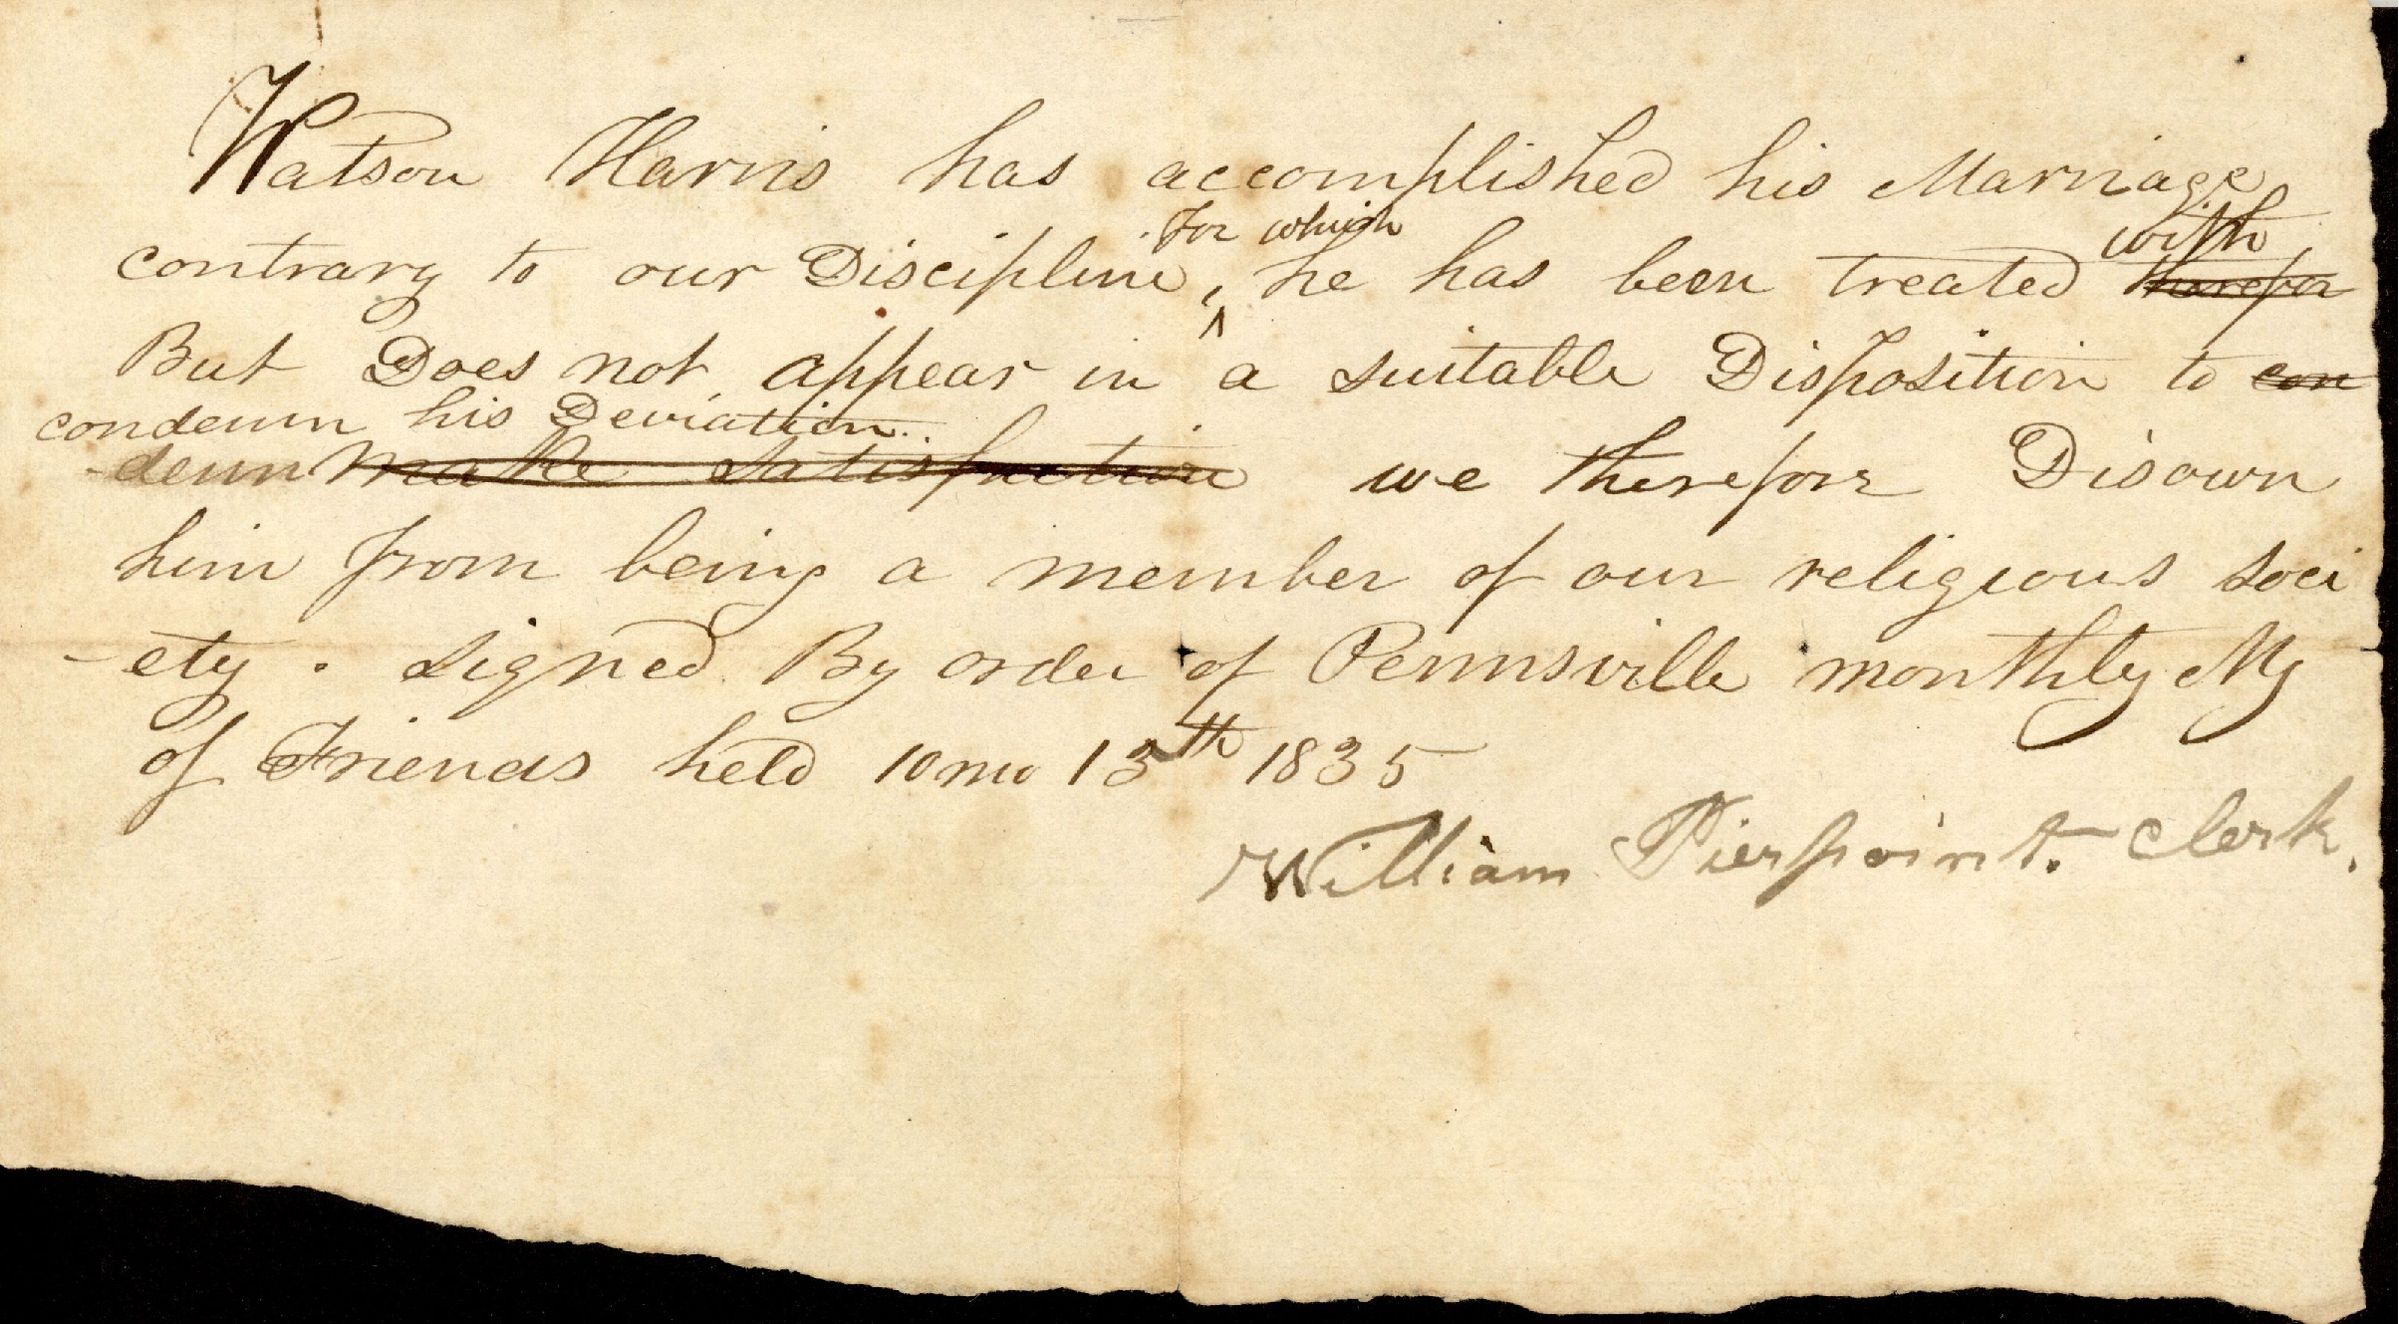 Watson Harris has accomplished his Marriage
for which with
contrary to our Discipline, he has been treated therefor
But Does not appear in a suitable Disposition to con
condemn his Deviation.
-demn make satisfaction we therefore Disown
him from being a member of our religious soci
-ety. signed By order of Pennsville monthly Mg
of Friends held 10 mo 13th 1835
William Pierpoint. Clerk.